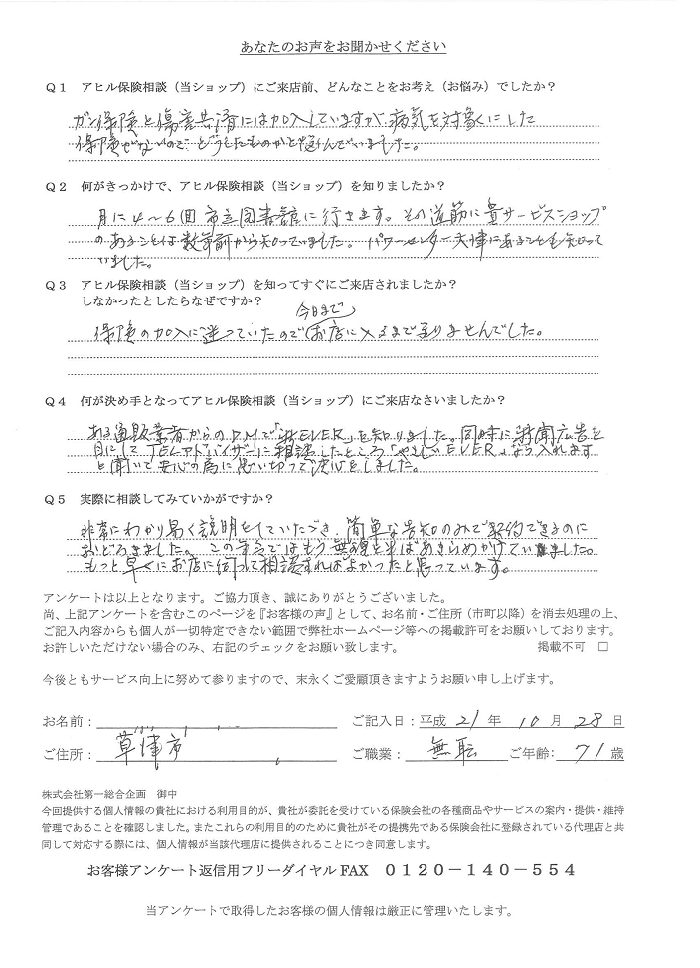 あなたのお声をお聞かせください
Q1 アヒル保険相談（当ショップ）にご来店前、どんなことをお考え（お悩み）でしたか？
ガン保険と傷害共済には加入していますが、病気を対象にした
保険がないので、どうしたものかと悩んでいました。
Q2 何がきっかけで、アヒル保険相談（当ショップ）を知りましたか？
月に4～6回市立図書館に行きます。その道筋に貴サービスショップ
のあることは数年前から知っていました。パワーセンター大津にあることも知って
いました。
Q3 アヒル保険相談（当ショップ）を知ってすぐにご来店されましたか？
しなかったとしたらなぜですか？
今日まで
保険の加入に迷っていたのでお店に入るまで至りませんでした。
Q4 何が決め手となってアヒル保険相談（当ショップ）にご来店なさいましたか？
ある通販業者からのDMで「新EVER」を知りました。同時に新聞広告を
目にしてTELアドバイザーに相談したところ「やさしいEVER」なら入れます
と聞いて安心の為に思い切って決心をしました。
Q5 実際に相談してみていかがですか？
非常にわかり易く説明をしていただき、簡単な告知のみで契約できるのに
おどろきました。この年ではもう無理と半ばあきらめかけていました。
もっと早くにお店に伺って相談すればよかったと思っています。
アンケートは以上となります。ご協力頂き、誠にありがとうございました。
尚、上記アンケートを含むこのページを『お客様の声』として、お名前・ご住所（市町以降）を消去処理の上、
ご記入内容からも個人が一切特定できない範囲で弊社ホームページ等への掲載許可をお願いしております。
お許しいただけない場合のみ、右記のチェックをお願い致します。 掲載不可 □
今後ともサービス向上に努めて参りますので、末永くご愛顧頂きますようお願い申し上げます。
お名前： ご記入日：平成 21 年 10 月 28 日
ご住所： 草津市 ご職業： 無職 ご年齢： 71 歳
株式会社第一総合企画 御中
今回提供する個人情報の貴社における利用目的が、貴社が委託を受けている保険会社の各種商品やサービスの案内・提供・維持
管理であることを確認しました。またこれらの利用目的のために貴社がその提携先である保険会社に登録されている代理店と共
同して対応する際には、個人情報が当該代理店に提供されることにつき同意します。
お客様アンケート返信用フリーダイヤルFAX 0120－140－554
当アンケートで取得したお客様の個人情報は厳正に管理いたします。